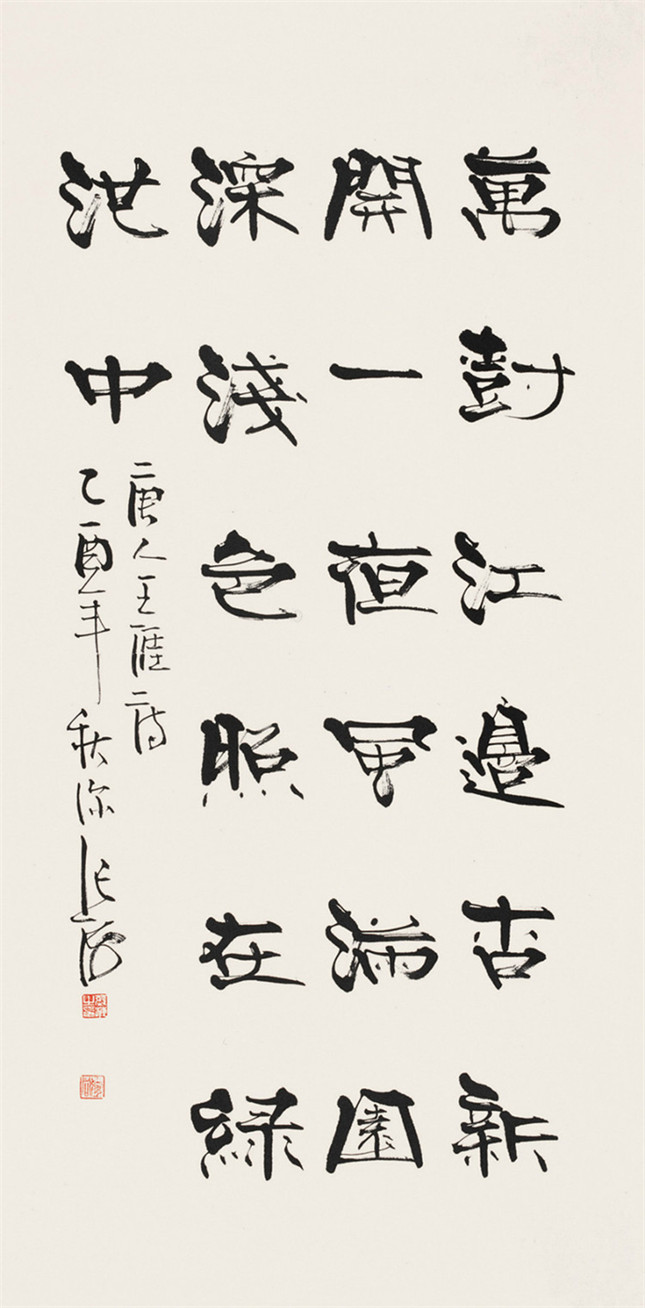 萬尌江邊杏新
開一夜風滿園
深淺色照在綠
池中
唐人王涯詩
乙酉年秋深張海